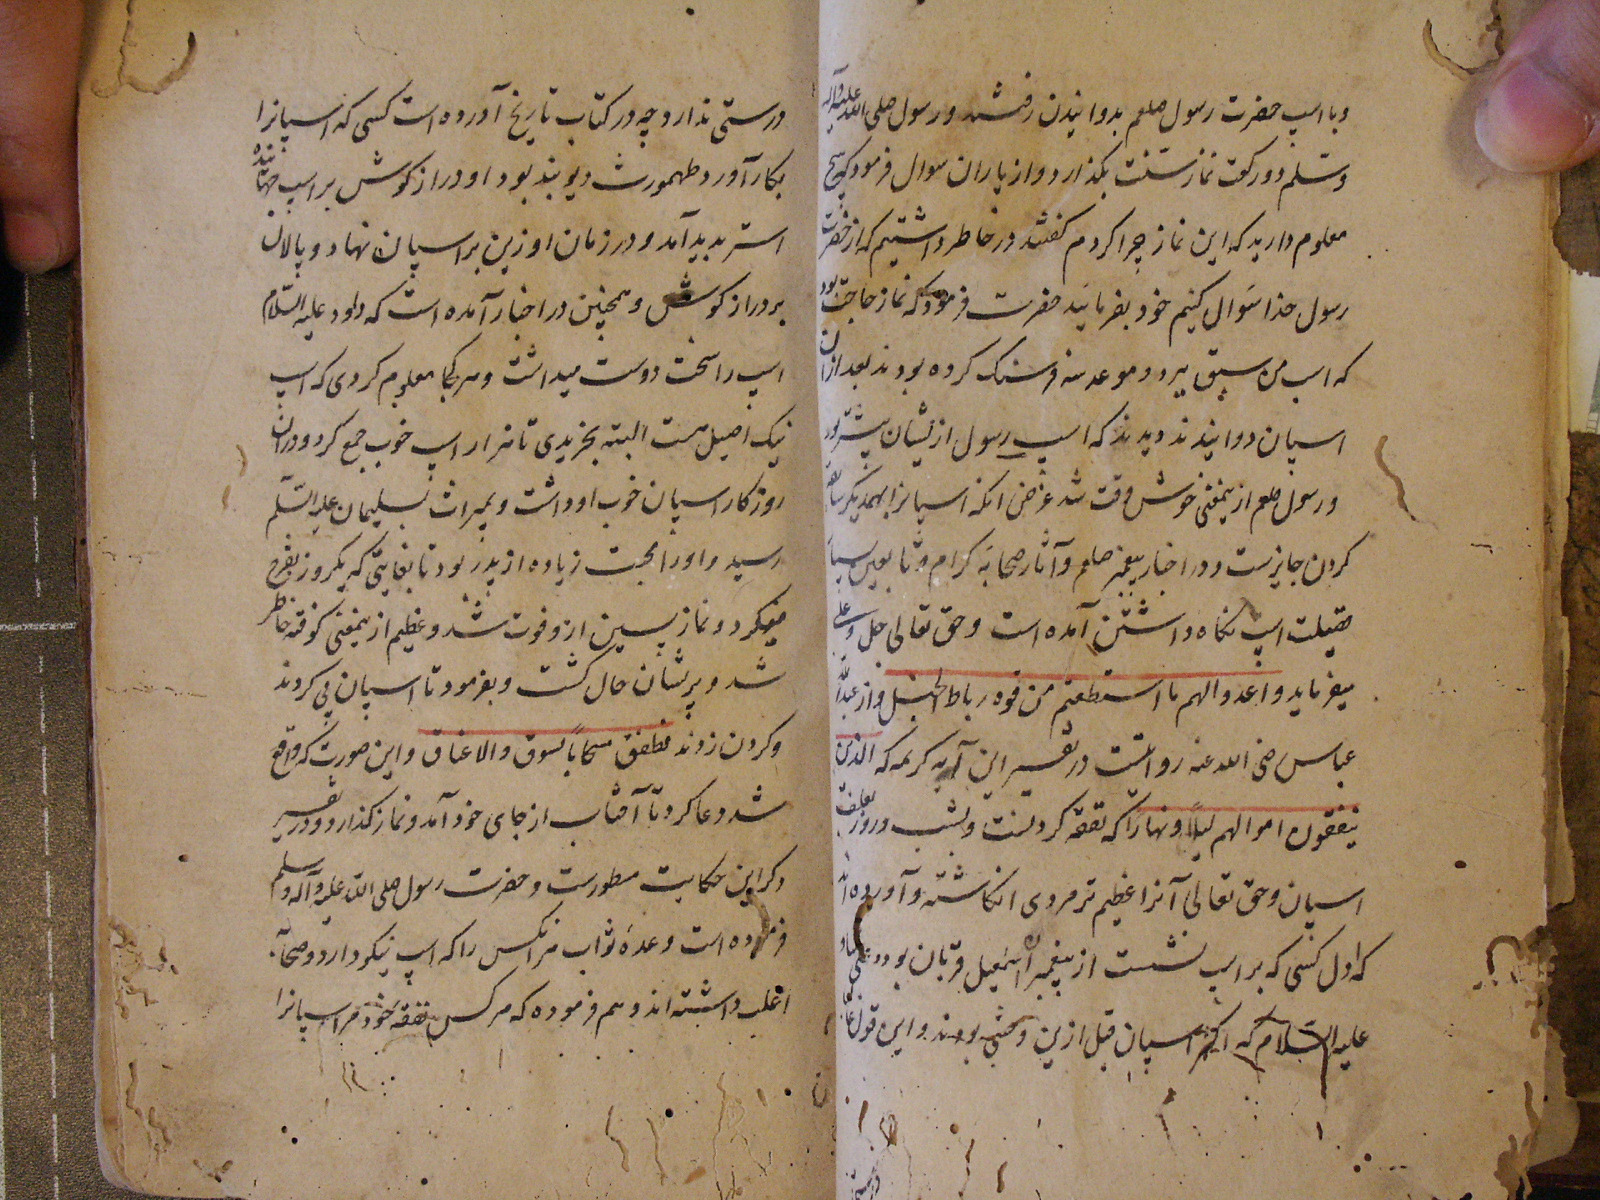 و با اسپ حضرت رسول صلعم بدوانیدن رفتند و رسول صلی الله علیه وآله
وسلم دو رکعت نماز سنت بگذارد و از یاران سوال فرمود که هیچ
معلوم دارید که این نماز چرا کردم گفتند در خاطر داشتیم که از حضرت
رسول خدا سوال کنیم خود بفرمایند حضرت فرمود که نماز حاجت بود
که اسب من سبق ببرد و موعد سه فرسنک کرده بودند بعد از ان
اسپان دوانیدند دیدند که اسپ رسول از یشان پیشتر بود
و رسول صلعم ازینمعنی خوش وقت شد غرض انکه اسپانرا بهمدیکر سابقه
کردن جایزست و در اخبار پیغمبر صلعم و آثار صحابه کرام و تابعین بسیار
فضیلت اسپ نکاه داشتن آمده است و حق تعالی جل و علی
میفرماید واعدوا لهم ما استطعتم من قوه رباط الخیل و از عبدالله
عباس رضی الله عنه روایتست در تفسیر این آیه کریمه که الذین
ینفقون اموالهم لیلاً و نهاراً که نفقه کردنست و بشب و روز بعلف
اسپان و حق تعالی آنرا عظیم تر مزدی انکاشته و آورده اند
که اول کسی که بر اسپ نشست از پیغمبران اسمعیل قربان بود
علیه السلام که اکثر اسپان قبل ازین وحشی بودند و این قول
درستی ندارد چه در کتاب تاریخ آورده است کسی که اسپانرا
بکار آورد طهمورث دیوبند بود او دراز کوش بر اسپ جهانیده
استر پدید آمد و در زمان او زین بر اسپان نهاد و پالان
بر دراز کوش و همچنین در اخبار آمده است که داود علیه السلام
اسپ را سخت دوست میداشت و هر کجا معلوم کردی که اسپ
نیک اصیل هست البته بخریدی تا هزار اسپ خوب جمع کرد و در ان
روزکار اسپان خوب او داشت و بمیراث بسلیمان علیه السلام
رسید و او را محبت زیاده از پدر بود تا بغایتی که یکروز تفرج
میکرد و نماز پسین ازو فوت شد و عظیم ازینمعنی کوفته خاطر
شد و پریشان حال کشت و بفرمود تا اسپان پی کردند
و کردن زدند فطفق مسحاً بالسوق والاعناق و این صورت که واقع
شد دعا کرد تا آفتاب از جای خود آمد و نماز کذارد و در تفسیر
دکر این حکایت مسطورست و حضرت رسول صلی الله علیه وآله وسلم
فرموده است وعده ثواب مر انکس را که اسپ نیکو دارد و صحابه
اغلب داشته اند و هم فرموده که هر کس نفقه خود مر اسپانرا